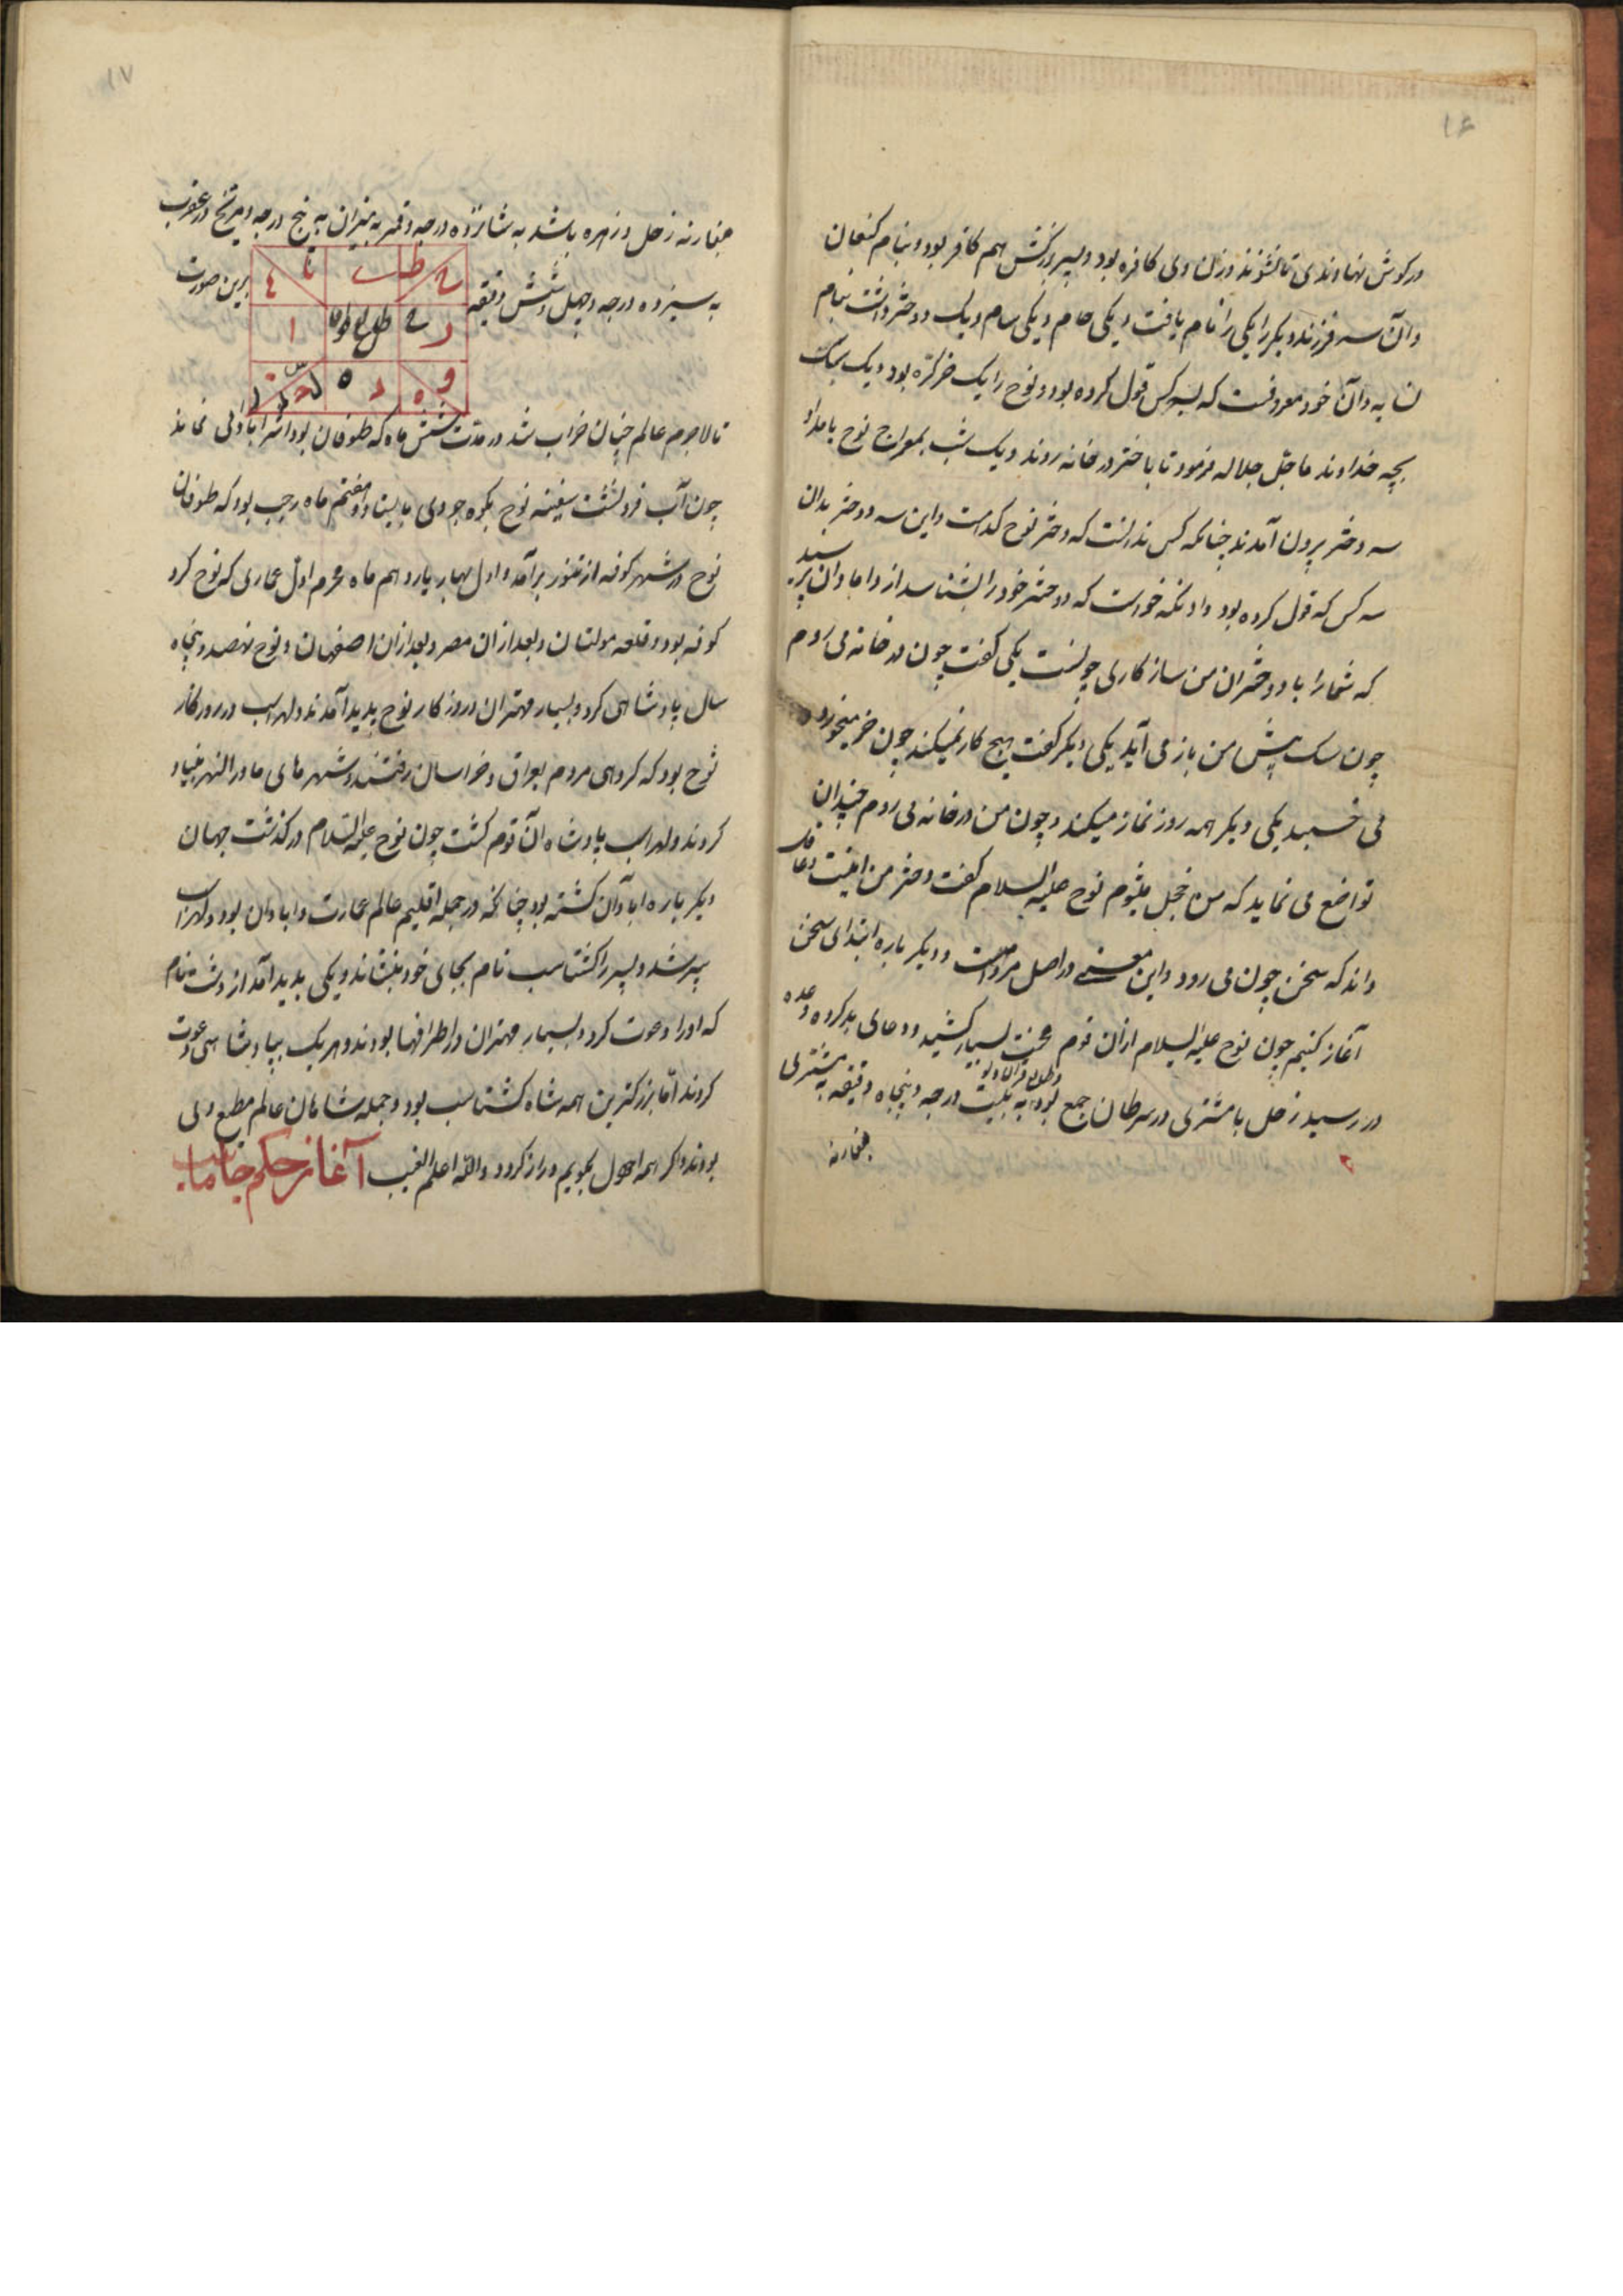 ۱۶
در گوش نهادندی تا نشنوند و زن وی کافره بود و پسر بزرگش هم کافر بود و بنام کنعان
و آن سه فرزند دیگر را یکی را نام یافت و یکی حام و یکی سام و یک دختر داشت بنام
و آن خود معروفست که بسه کس قول کرده بود و نوح را یک خر کره بود و یک سک
بچه خداوند ما جل جلاله فرمود تا با دختر در خانه روند و یک شب بمعراج نوح بامداد
سه دختر برون آمدند چنانکه کس ندانست که دختر نوح کدامست و این سه دختر بدان
سه کس که قول کرده بود داد نکه خواست که دختر خود را بشناسد از دامادان پرسید
که شما را با دختران من سازکاری چونست یکی گفت چون در خانه می روم
چون سک پیش من باز می آید یکی دیگر گفت هیچ کار نمیکند چون خر میخورد و
می خسبد یکی دیگر همه روز نماز میکند و چون من در خانه می روم چندان
تواضع می نماید که من خجل میشوم نوح علیه السلام گفت دختر من اینست
داند که سخن چون می رود و این معنی در اصل مرد است و دیگر باره ابتدای سخن
آغاز کنیم چون نوح علیه السلام ازان قوم محنت بسیار کشید و دعای بد کرد و وعده
در رسید زحل با مشتری در سرطان جمع بود به بیست درجه و پنجاه دقیقه مشتری
بمقارنه
۱۷
بمقارنه زحل و زهره باشد به شانزده درجه و قمر به میزان به پنج درجه و مریخ در عقرب
به سیزده درجه و چهل و شش دقیقه برین صورت
تا لاجرم عالم چنان خراب شد در مدت شش ماه که طوفان بود اثر آبادانی نماند
چون آب فرو نشست سفینه نوح بکوه جودی بایستاد و هفتم ماه رجب بود که طوفان
نوح در شهر کوفه از تنور برآمد و اول بهار یازدهم ماه محرم اول عماری که نوح کرد
کوفه بود و قلعه مولتان و بعد ازان مصر و بعد ازان اصفهان و نوح نهصد و پنجاه
سال پادشاهی کرد و بسیار مهتران در روزکار نوح پدید آمدند و لهراسب در روزکار
نوح بود که کروهی مردم بعراق و خراسان رفتند و شهرهای ماورالنهر بنیاد
کردند و لهراسب پادشاه آن قوم کشت چون نوح علیه السلام درگذشت جهان
دیگر باره ابادان کشته بود چنانکه در جمله اقلیم عالم عمارت و ابادان بود و لهراسب
پیر شد و پسر را کشتاسب نام بجای خود بنشاند و یکی پدید آمد زردشت نام
که او را دعوت کرد و بسیار مهتران در اطرافها بودند و هر یک بپادشاهی دعوت
کردند اما بزرکترین همه شاه کشتاسب بود و جمله شاهان عالم مطیع وی
بودند و اکر همه احوال بگویم دراز کردد والله اعلم الغیب آغاز حکم جاماسب